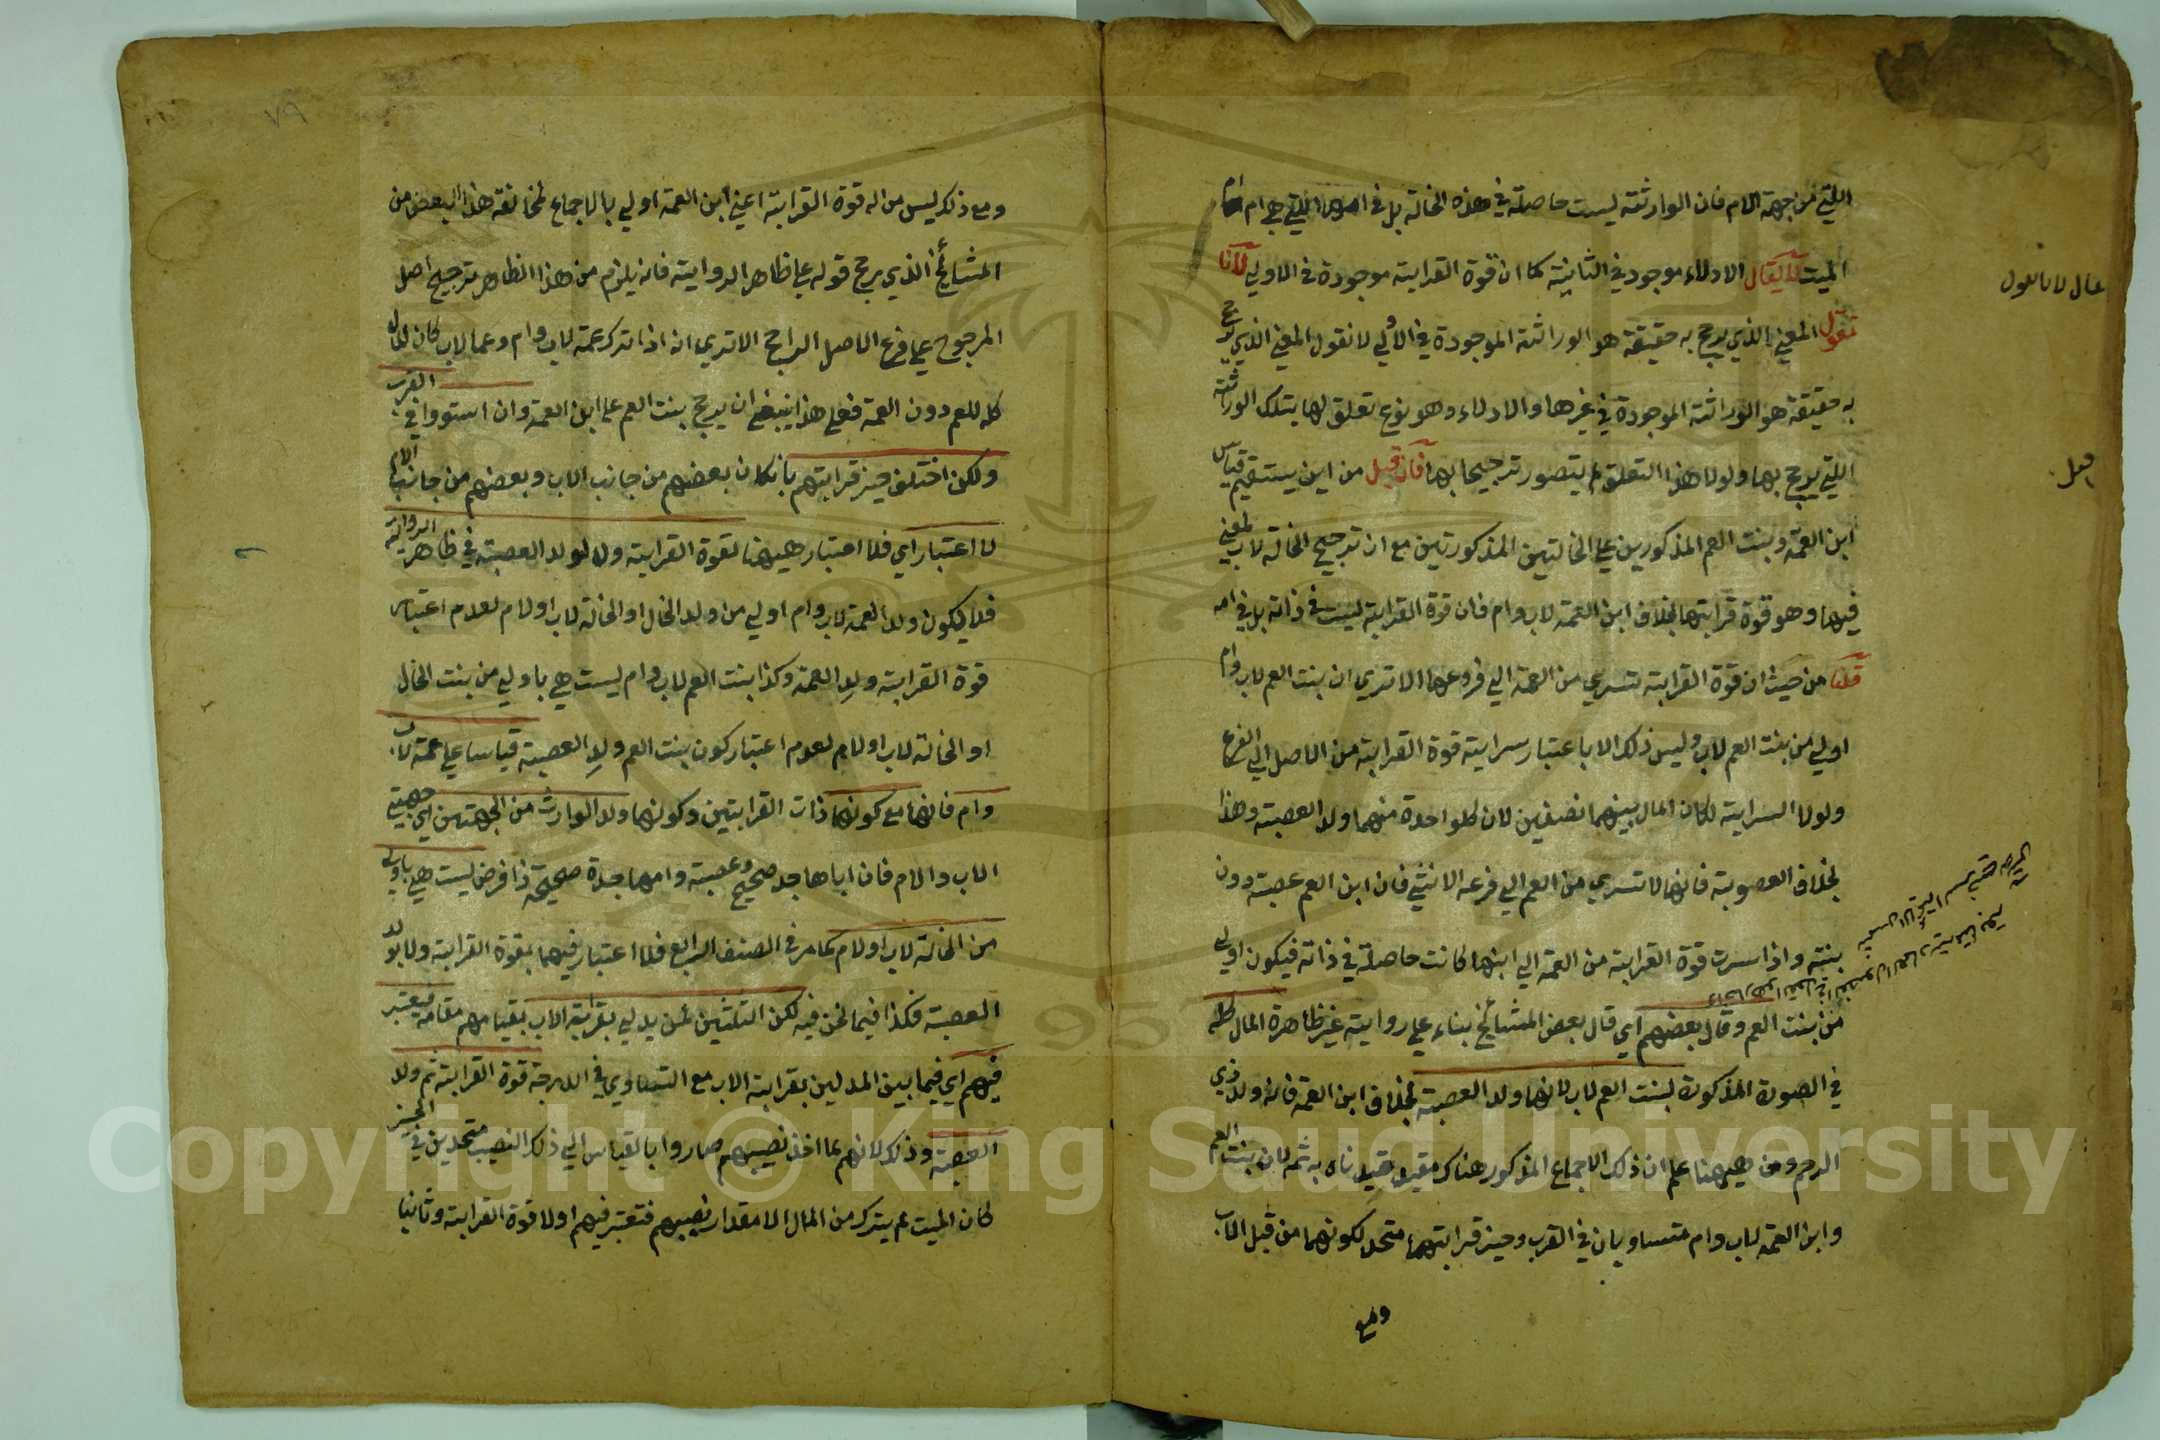 اللتي من جهة الام فان الوارثة ليست حاصلة في هذه الخالة بل في امها اللتي هي ام ام
الميت لا يقال الادلاء موجود في الثانية كما ان قوة القرابة موجودة في الاولي لانا
نقول المعني الذي يرجح به حقيقة هو الوراثة الموجودة في الاولي لا نقول المعني الذي يرجح
به حقيقة هو الوراثة الموجودة في غيرها والادلاء وهو نوع تعلق لها بتلك الوراثة
اللتي يرجح بها ولولا هذا التعلق لم يتصور ترجيحا بها فان قيل من اين يستقيم قياس
ابن العمة وبنت العم المذكورين علي الخالتين المذكورتين مع ان ترجيح الخالة لاب لمعني
فيها وهو قوة قرابتها بخلاف ابن العمة لاب وام فان قوة القرابة ليست في ذاته بل في امه
قلنا من حيث ان قوة القرابة تسري من العمة الي فروعها الا تري ان بنت العم لاب وام
اولي من بنت العم لاب وليس ذلك الا باعتبار سراية قوة القرابة من الاصل الي الفرع
ولولا السراية لكان المال بينهما نصفين لان كل واحدة منهما ولد العصبة وهذا
بخلاف العصوبة فانها لا تسري من العم الي فرعه الانثي فان ابن العم عصبة دون
بنته واذا سرت قوة القرابة من العمة الي ابنها كانت حاصلة في ذاته فيكون اولي
من بنت العم وقال بعضهم اي قال بعض المشائخ بناء علي رواية غير ظاهرة المال كله
في الصورة المذكورة لبنت العم لاب لانها ولد العصبة بخلاف ابن العمة فانه ولد ذي
الرحم ومن ههنا علم ان ذلك الاجماع المذكور هناك مقيد بقيدناه به ثمه لان بنت العم
وابن العمة لاب وام متساويان في القرب وحيز قرابتهما متحد لكونهما من قبل الاب
ومع
قال لانا نقول
قيل
ومع ذلك ليس من له قوة القرابة اعني ابن العمة اولي بالاجماع لمخالفة هذا البعض من
المشائخ الذي يرجح قوله علي ظاهر الرواية فانه يلزم من هذا الظاهر ترجيح اصل
المرجوح علي فرع الاصل الراجح الا تري انه اذا ترك عمة لاب وام وعما لاب كان المال
كله للعم دون العمة فعلي هذا ينبغي ان يرجح بنت العم علي ابن العمة وان استووا في القرب
ولكن اختلف حيز قرابتهم بان كان بعضهم من جانب الاب وبعضهم من جانب الام
لا اعتبار اي فلا اعتبار ههنا لقوة القرابة ولا لولد العصبة في ظاهر الرواية
فلا يكون ولد العمة لاب وام اولي من ولد الخال او الخالة لاب او لام لعدم اعتبار
قوة القرابة ولد العمة وكذا بنت العم لاب وام ليست هي باولي من بنت الخال
او الخالة لاب او لام لعدم اعتبار كون بنت العم ولد العصبة قياسا علي عمة لاب
وام فانها مع كونها ذات القرابتين وكونها ولد الوارث من الجهتين اي جهتي
الاب والام فان اباها جد صحيح وعصبة وامها جدة صحيحة ذا فرض ليست هي باولي
من الخالة لاب او لام كما مر في الصنف الرابع فلا اعتبار فيهما بقوة القرابة ولا بولد
العصبة فكذا فيما نحن فيه لكن الثلثين لمن يدلي بقرابة الاب بقيامهم مقامه فيعتبر
فيهم اي فيما بين المدلين بقرابة الاب مع التساوي في الدرجة قوة القرابة ثم ولد
العصبة وذلك لانهم لما اخذ نصيبهم صاروا بالقياس الي ذلك النصيب متحدين في الحيز
كان الميت لم يترك من المال الا مقدار نصيبهم فتعتبر فيهم اولا قوة القرابة وثانيا
٧٩
Copyright © King Saud University